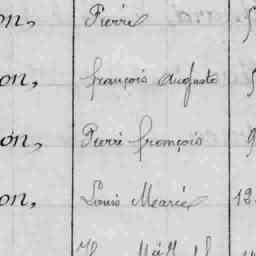 on, Pierre 5
on, françois Auguste 5
on, Pierre françois 9
on, Louis Marie 12